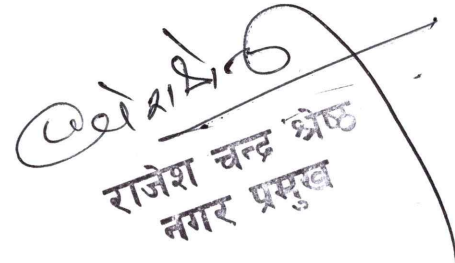 राजेश चन्द्र श्रेष्ठ
नगर प्रमुख